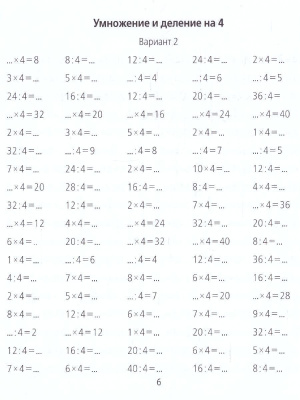 Умножение и деление на 4
Вариант 2
...×4=8 8:4=... 12:4=... 24:4=... 2×4=...
3×4=... 5×4=... ...:4=... ...:4=6 ...:4=5
24:4=... 16:4=... 12:4=... 20:4=... 36:4=
...×4=32 ...×4=20 ...×4=16 ...×4=24 ...×4=40
2×4=... 3×4=... 5×4=... 2×4=... 1×4=...
32:4=... ...:4=9 ...:4=8 ...:4=7 ...:4=5
7×4=... 24:4=... 2×4=... 10×4=... 12:4=...
...×4=20 28:4=... 16:4=... 8:4=... 4×4=...
32:4=... 12:4=... 2×4=... 7×4=... ...×4=36
...×4=12 4×4=... 24:4=... 32:4=... 20:4=...
6×4=... 20:4=... ...×4=32 ...×4=40 8:4=...
1×4=... ...:4=6 ...:4=4 12:4=... 36:4=...
4:4=... 7×4=... 8×4=... 6×4=... 16:4=...
2×4=... 5×4=... ...:4=7 ...×4=20 ...×4=28
8×4=... 12:4=... 6×4=... 8:4=... 9×4=...
...:4=2 ...×4=12 1×4=... 20:4=... 32:4=...
12:4=... 16:4=... 20:4=... 6×4=... 5×4=...
7×4=... 6×4=... 40:4=... 16:4=... 8:4=...
6